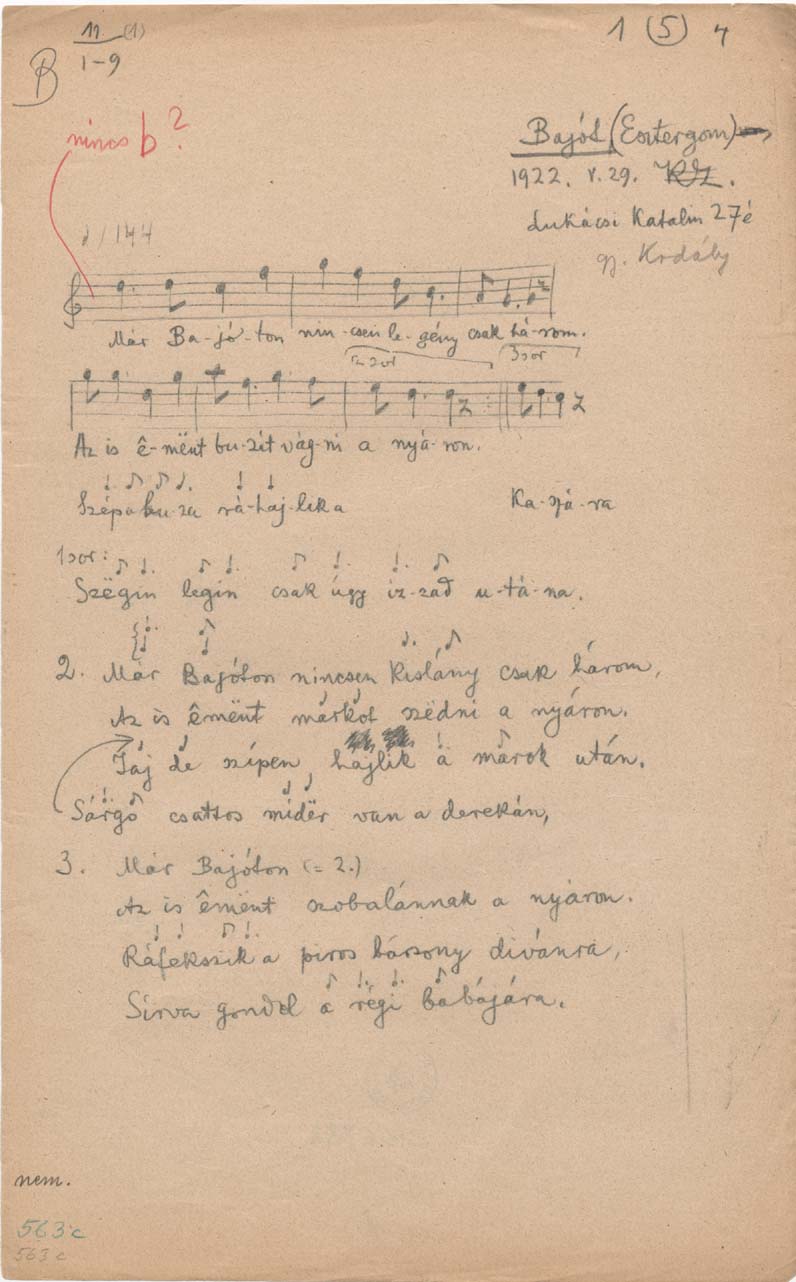 11 (1)
1-9
B
1 (5) 4
nincs b?
Bajót (Esztergom)
1922. V. 29.
Lukácsi Katalin 27é
gy. Krdály
/ 144
Már Ba-jó-ton nin-csen le-gény csak há-rom.
2 sor
3 sor
Az is ê-mënt bu-zát vág-ni a nyá-ron.
Szép a bu-za rá-haj-lik a Ka-szá-ra
1 sor:
Szëgin legin csak úgy iz-zad u-tá-na.
2. Már Bajóton nincsen kislány csak három,
Az is êmënt markot szëdni a nyáron.
Jaj de szípen hajlik a marok után.
Sárgo csattos midër van a derekán,
3. Már Bajóton (= 2.)
Az is êmënt szobalánnak a nyáron.
Ráfekszik a piros bársony divánra,
Sírva gondol a régi babájára.
nem.
563 c
563 c